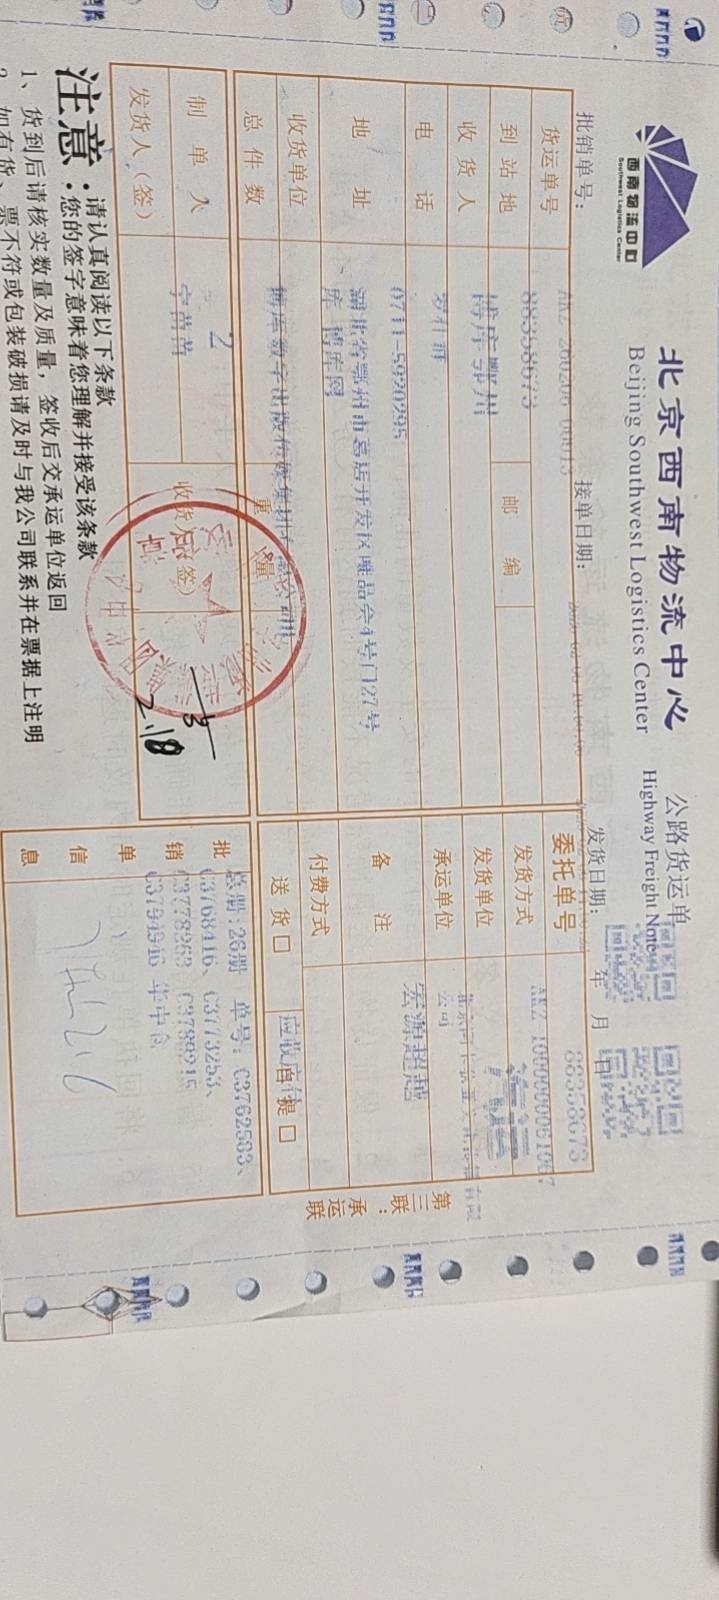 西南物流中心
Southwest Logistics Center
北京西南物流中心
Beijing Southwest Logistics Center
公路货运单
Highway Freight Note
批销单号:
接单日期:
发货日期: 年 月 日
货运单号
88358673
委托单号
88358673
到站地
博库鄂州
邮编
发货方式
收货人
发货单位
公司
电话
0711-5920295
承运单位
宏源超越
地址
湖北省鄂州市葛店开发区唯品会4号门27号
库 博库网
备注
收货单位
付费方式
总件数
2
重量
送货□
自提□
制单人
收货人(签)
发货人(签)
2.18
批销单信息
总册:26册 单号:C3762583、
C3768416、C3773253、
C3778263 C3789215
C3794946 华中仓
第三联:承运联
注意:
请认真阅读以下条款
您的签字意味着您理解并接受该条款
1、货到后请核实数量及质量，签收后交承运单位返回
2、如有货、票不符或包装破损请及时与我公司联系并在票据上注明